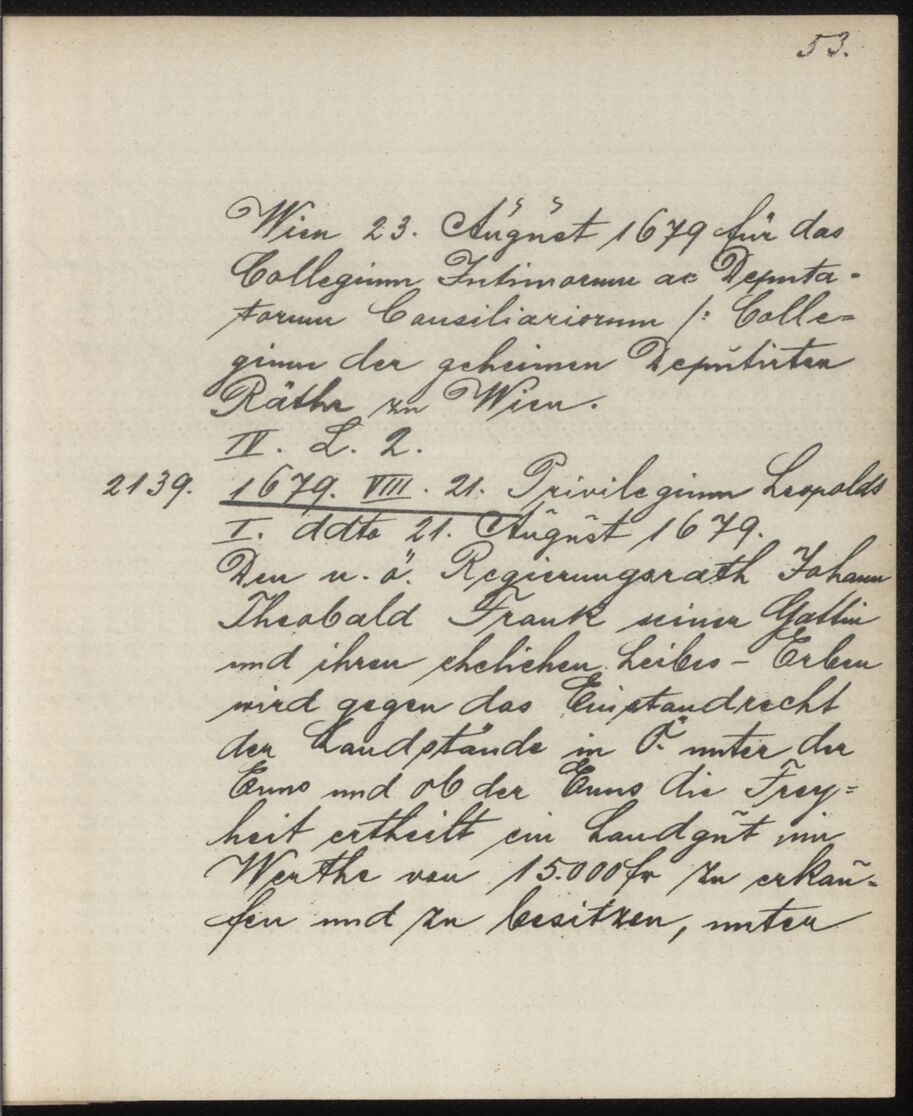 53.
Wien 23. August 1679 für das
Collegium Intimorum ac Deputa-
torum Consiliariorum /: Colle=
gium der geheimen Deputirten
Räthe zu Wien.
IV. L. 2.
2139. 1679. VIII. 21. Privilegium Leopolds
I. ddto 21. August 1679.
Den n. ö. Regierungsrath Johann
Theobald Frank seiner Gattin
und ihren ehelichen Leibes-Erben
wird gegen das Einstandrecht
der Landstände in Ö. unter der
Enns und ob der Enns die Frey=
heit ertheilt ein Landgut im
Werthe von 15.000 fr zu erkau-
fen und zu besitzen, unter